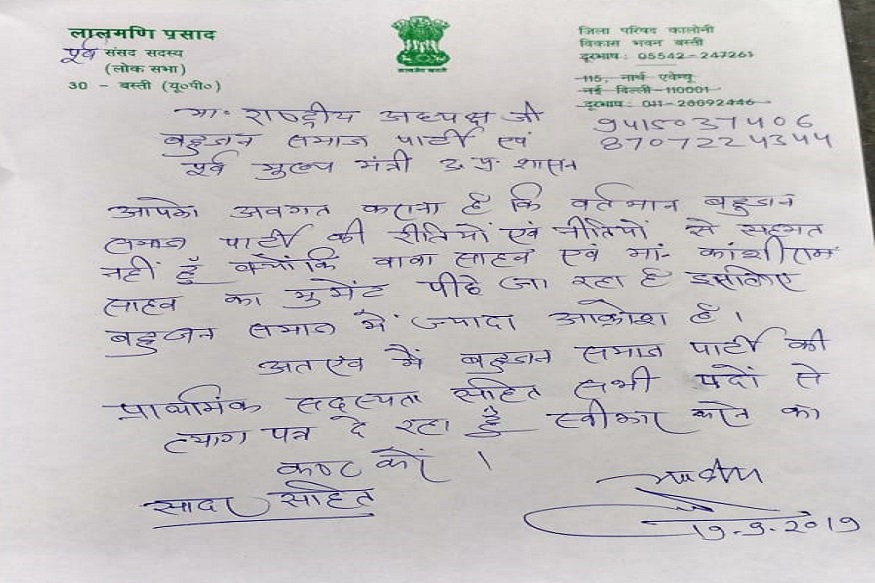 लालमणि प्रसाद
पूर्व संसद सदस्य
(लोक सभा)
30 - बस्ती (यू०पी०)
जिला परिषद कालोनी
विकास भवन बस्ती
दूरभाष : 05542-247261
115, नार्थ एवेन्यू
नई दिल्ली-110001
दूरभाष : 011-20092446
9415037406
8707224344
मा० राष्ट्रीय अध्यक्ष जी
बहुजन समाज पार्टी एवं
पूर्व मुख्य मंत्री उ. प्र. शासन
आपको अवगत कराना है कि वर्तमान बहुजन
समाज पार्टी की रीतियों एवं नीतियों से सहमत
नहीं हूँ क्योंकि बाबा साहब एवं मा० कांशीराम
साहब का मुमेंट पीछे जा रहा है इसलिए
बहुजन समाज में ज्यादा आक्रोश है।
अतएव मैं बहुजन समाज पार्टी की
प्राथमिक सदस्यता सहित सभी पदों से
त्याग पत्र दे रहा हूँ स्वीकार करने का
कष्ट करें।
सादर सहित
19-9-2019